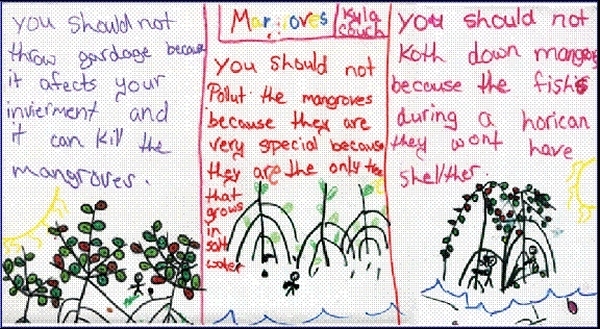 you should not
throw gardage because
it afects your
invierment and
it can kill the
mangroves.
Mangroves
Kyla
Couch
you should not
Pollut the mangroves
because they are
very special because
they are the only tree
that
grows
in
salt
water
you should not
Koth down mangroves
because the fishis
during a horican
they wont have
shellther.